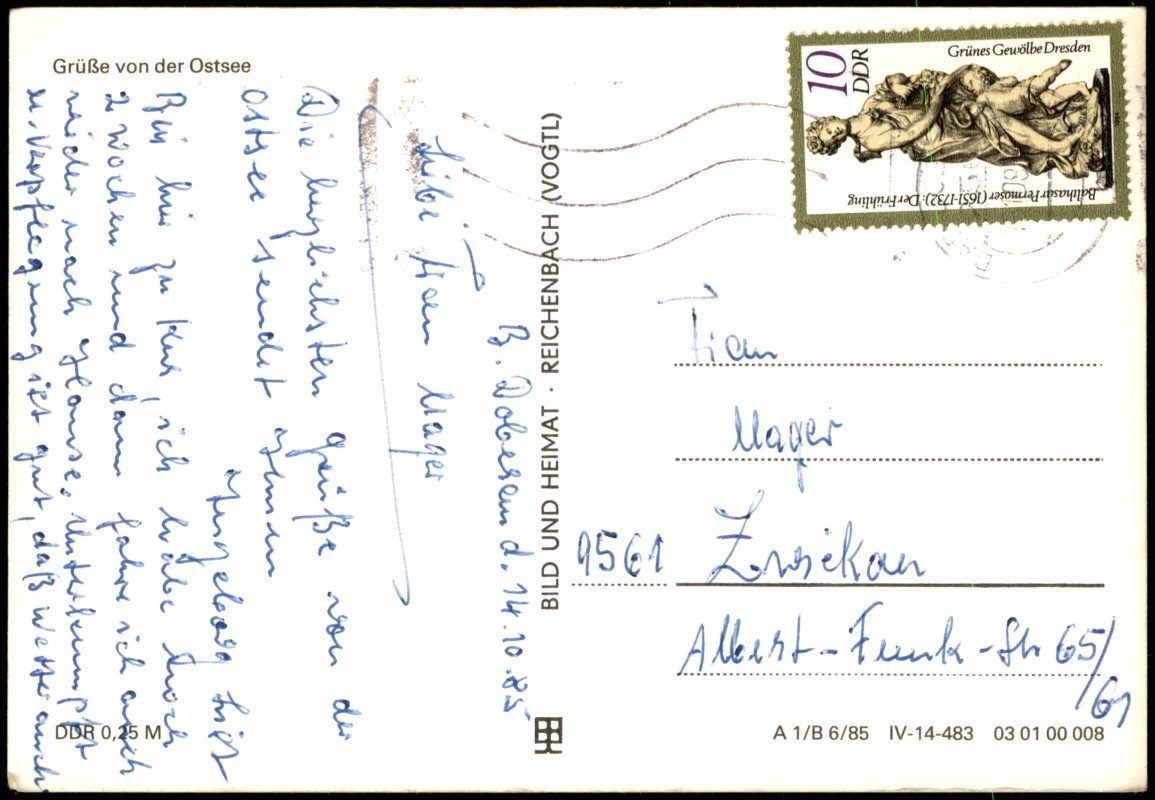 Grüße von der Ostsee
B. Doberan d. 14.10.85
Liebe Frau Mager
Die herzlichsten Grüße von der
Ostsee sendet Ihnen
Ingeborg
Bin hier zu Kur, ich habe noch
2 Wochen und dann fahre ich auch
wieder nach Hause. Unterkunft
u. Verpflegung ist gut, daß Wetter auch
DDR 0,25 M
BILD UND HEIMAT · REICHENBACH (VOGTL)
Grünes Gewölbe Dresden
10
DDR
Balthasar Permoser (1651-1732): Der Frühling
Frau
Mager
9561 Zwickau
Albert-Funk-Str 65/
61
A 1/B 6/85 IV-14-483 03 01 00 008